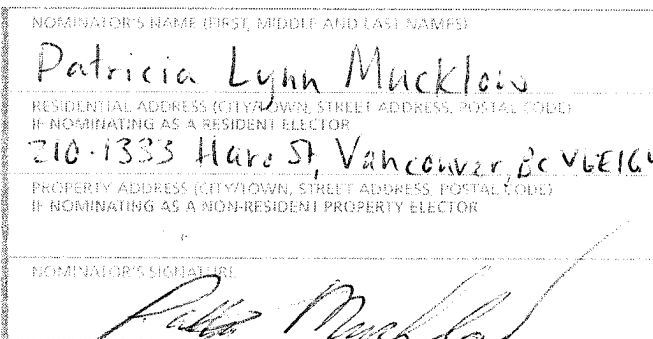 NOMINATOR'S NAME (FIRST, MIDDLE AND LAST NAMES)
Patricia Lynn Mucklow
RESIDENTIAL ADDRESS (CITY/TOWN, STREET ADDRESS, POSTAL CODE)
IF NOMINATING AS A RESIDENT ELECTOR
210-1333 Haro St, Vancouver, BC V6E1G
PROPERTY ADDRESS (CITY/TOWN, STREET ADDRESS, POSTAL CODE)
IF NOMINATING AS A NON-RESIDENT PROPERTY ELECTOR
NOMINATOR'S SIGNATURE